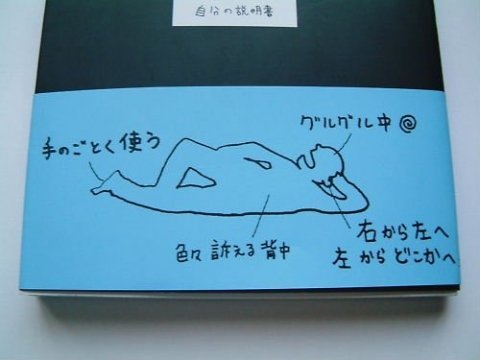 自分の説明書
グルグル中
手のごとく使う
色々訴える背中
右から左へ
左からどこかへ